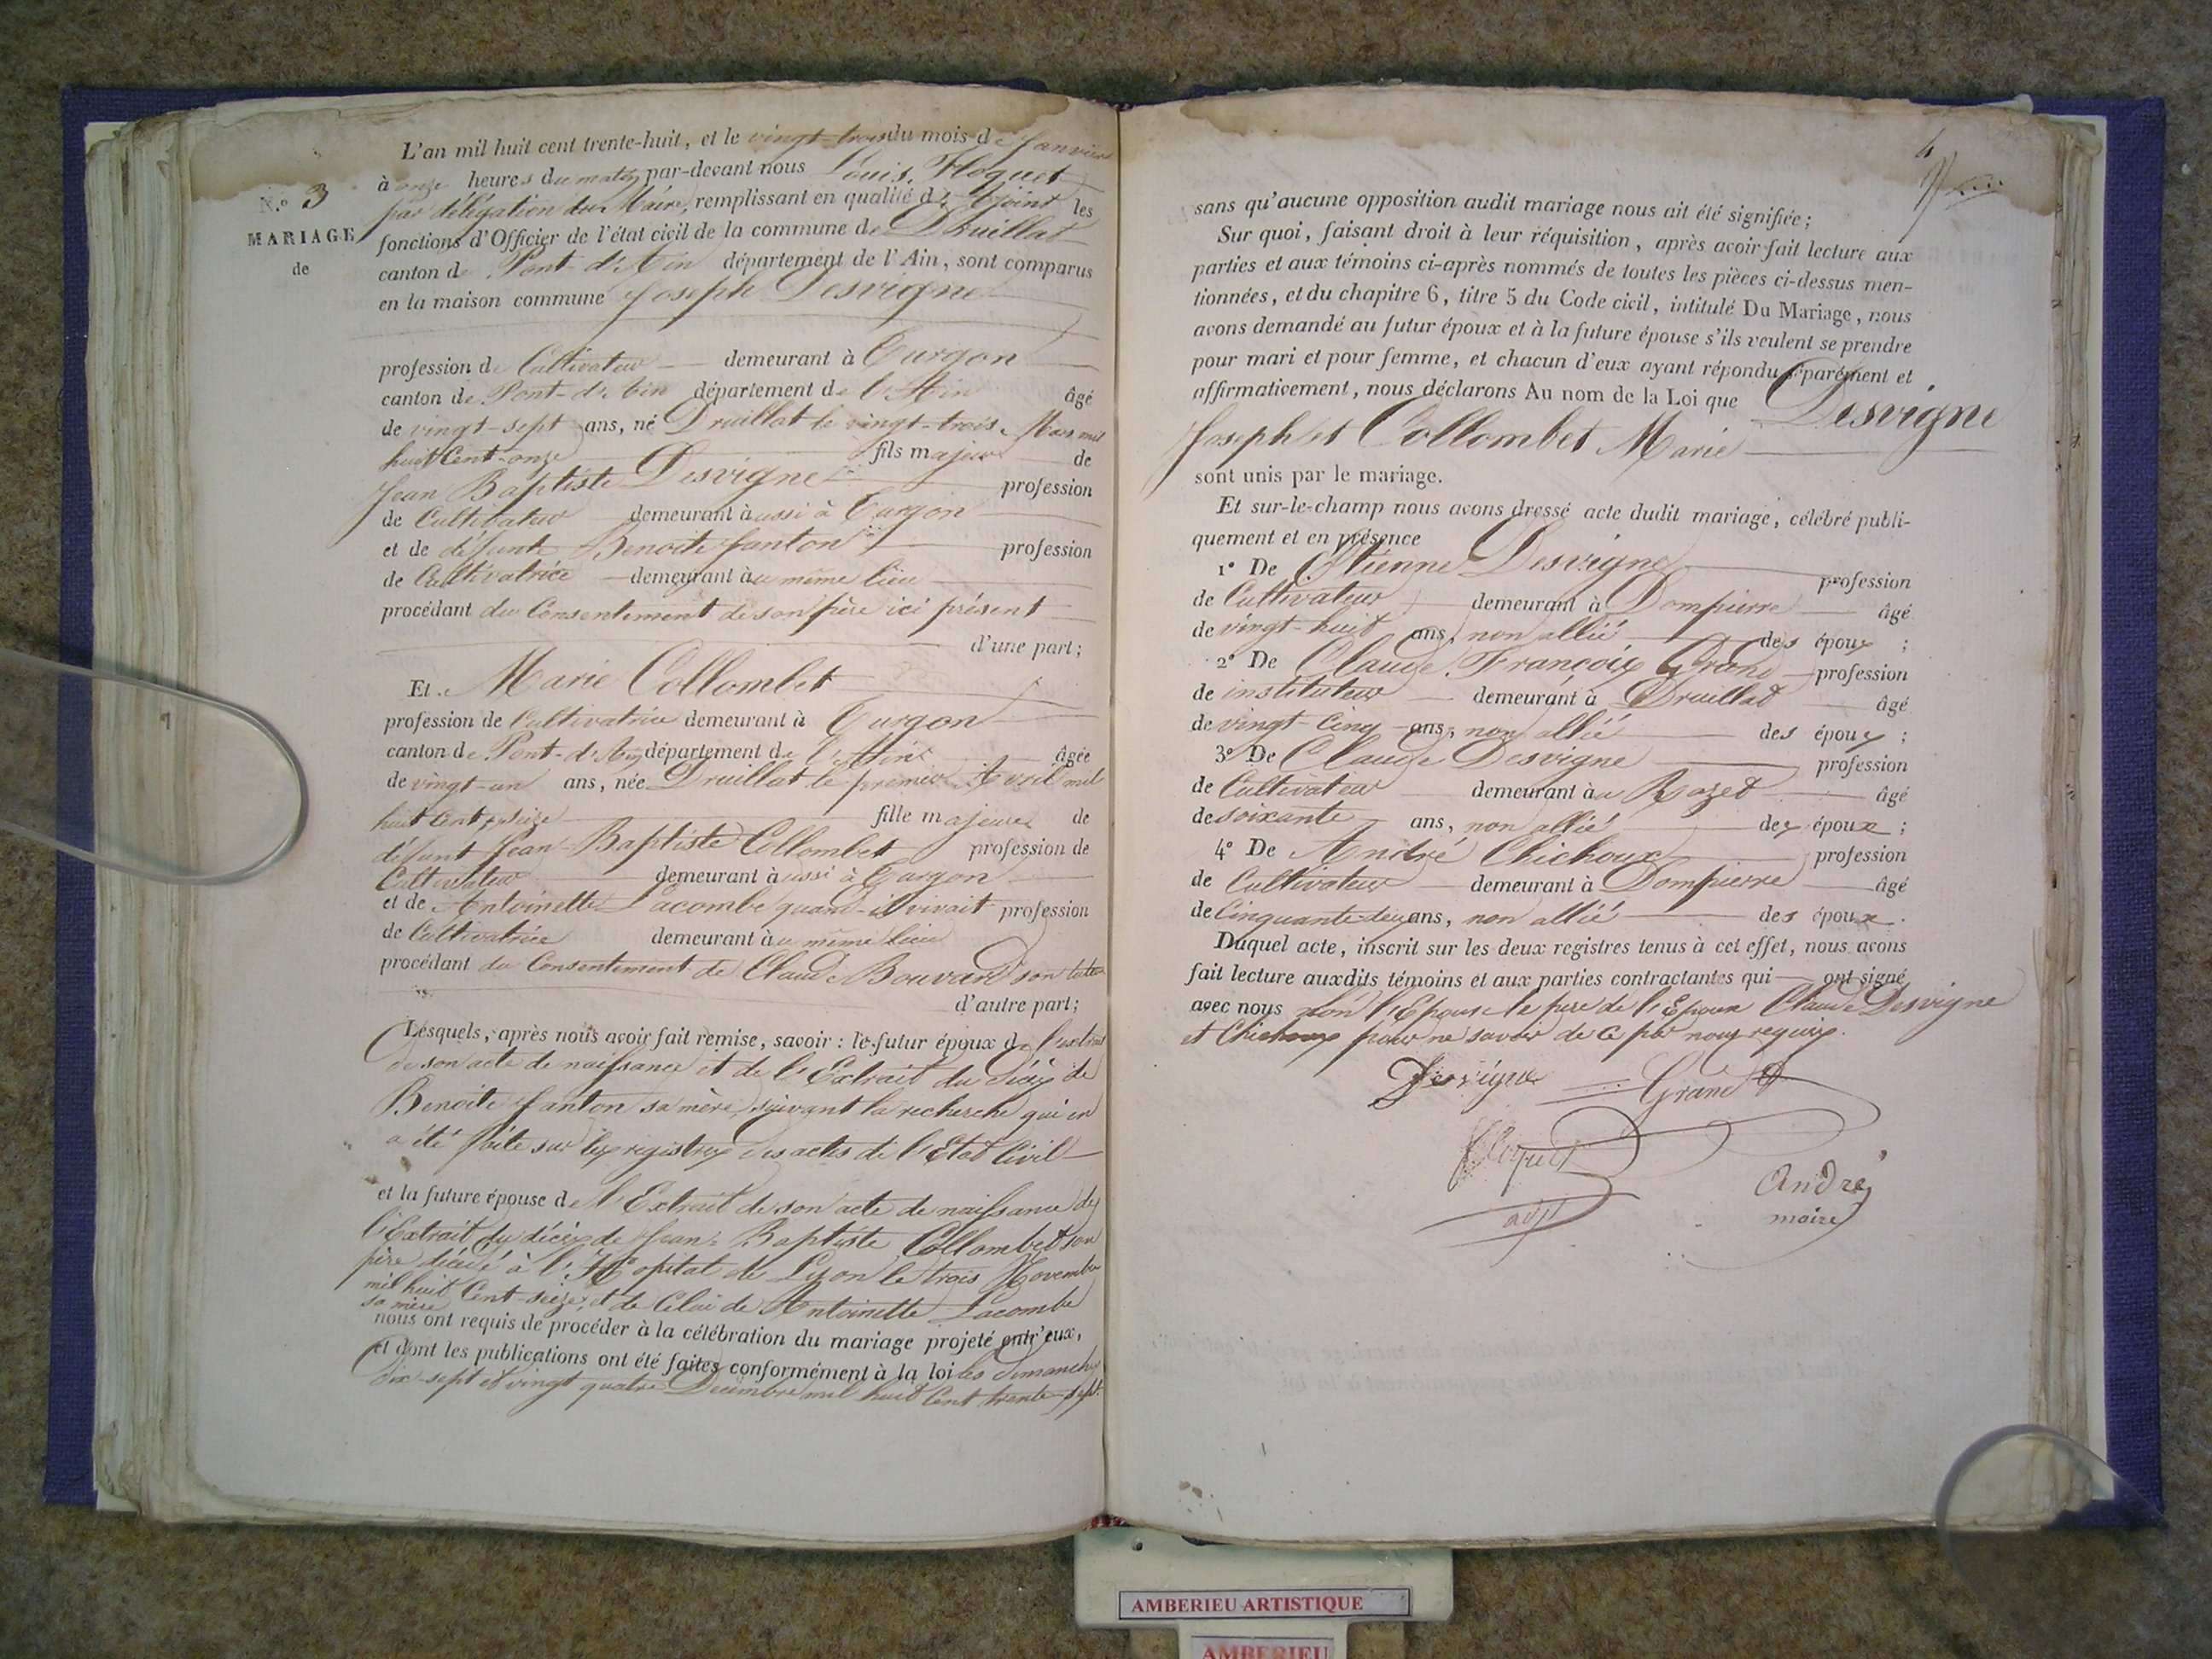 L'an mil huit cent trente-huit, et le vingt-trois du mois de Janvier
à onze heures du matin par-devant nous Louis Floquet
N.º 3
par délégation du Maire, remplissant en qualité d'Ajoint les
MARIAGE
fonctions d'Officier de l'état civil de la commune de Druillat
de
canton de Pont-d'Ain département de l'Ain, sont comparus
en la maison commune Joseph Desvigne
profession de Cultivateur demeurant à Turgon
canton de Pont-d'Ain département de l'Ain âgé
de vingt-sept ans, né Druillat le vingt-trois Mars mil
huit Cent-onze fils majeur de
Jean Baptiste Desvigne profession
de Cultivateur demeurant à aussi à Turgon
et de défunte Benoite Janton profession
de Cultivatrice demeurant à au même lieu
procédant du Consentement de son père ici présent
d'une part;
Et Marie Collombet
profession de Cultivatrice demeurant à Turgon
canton de Pont-d'Ain département de l'Ain âgée
de vingt-un ans, née Druillat le premier Avril mil
huit Cent seize fille majeure de
défunt Jean Baptiste Collombet profession de
Cultivateur demeurant à aussi à Turgon
et de Antoinette Lacombe quand-il vivait profession
de Cultivatrice demeurant à au même lieu
procédant du Consentement de Claude Bouvard son tuteur
d'autre part;
Lesquels, après nous avoir fait remise, savoir: le futur époux de l'extrait
de son acte de naissance et de l'Extrait du décès de
Benoite Janton sa mère, suivant la recherche qui en
a été faite sur les registres des actes de l'Etat Civil
et la future épouse de l'Extrait de son acte de naissance de
l'Extrait du décès de Jean Baptiste Collombet son
père décédé à l'Hopital de Lyon le trois Novembre
mil huit Cent-seize, et de Celui de Antoinette Lacombe
sa mère
nous ont requis de procéder à la célébration du mariage projeté entr'eux,
et dont les publications ont été faites conformément à la loi les dimanches
dix-sept et vingt quatre Décembre mil huit Cent trente-sept.
4
sans qu'aucune opposition audit mariage nous ait été signifiée;
Sur quoi, faisant droit à leur réquisition, après avoir fait lecture aux
parties et aux témoins ci-après nommés de toutes les pièces ci-dessus men-
tionnées, et du chapitre 6, titre 5 du Code civil, intitulé Du Mariage, nous
avons demandé au futur époux et à la future épouse s'ils veulent se prendre
pour mari et pour femme, et chacun d'eux ayant répondu séparément et
affirmativement, nous déclarons Au nom de la Loi que Desvigne
Joseph et Collombet Marie
sont unis par le mariage.
Et sur-le-champ nous avons dressé acte dudit mariage, célébré publi-
quement et en présence
1º De Etienne Desvigne profession
de Cultivateur demeurant à Dompierre âgé
de vingt-huit ans, non allié des époux ;
2º De Claude François Grand profession
de instituteur demeurant à Druillat âgé
de vingt-Cinq ans, non allié des époux ;
3º De Claude Desvigne profession
de Cultivateur demeurant à au Rozet âgé
de soixante ans, non allié des époux ;
4º De André Chichoux profession
de Cultivateur demeurant à Dompierre âgé
de Cinquante-deux ans, non allié des époux.
Duquel acte, inscrit sur les deux registres tenus à cet effet, nous avons
fait lecture auxdits témoins et aux parties contractantes qui ont signé
avec nous non l'Epouse le père de l'Epoux Claude Desvigne
et Chichoux pour ne savoir de ce par nous requis.
Desvigne Grand
Floquet
adjt
André
maire
AMBERIEU ARTISTIQUE
AMBERIEU